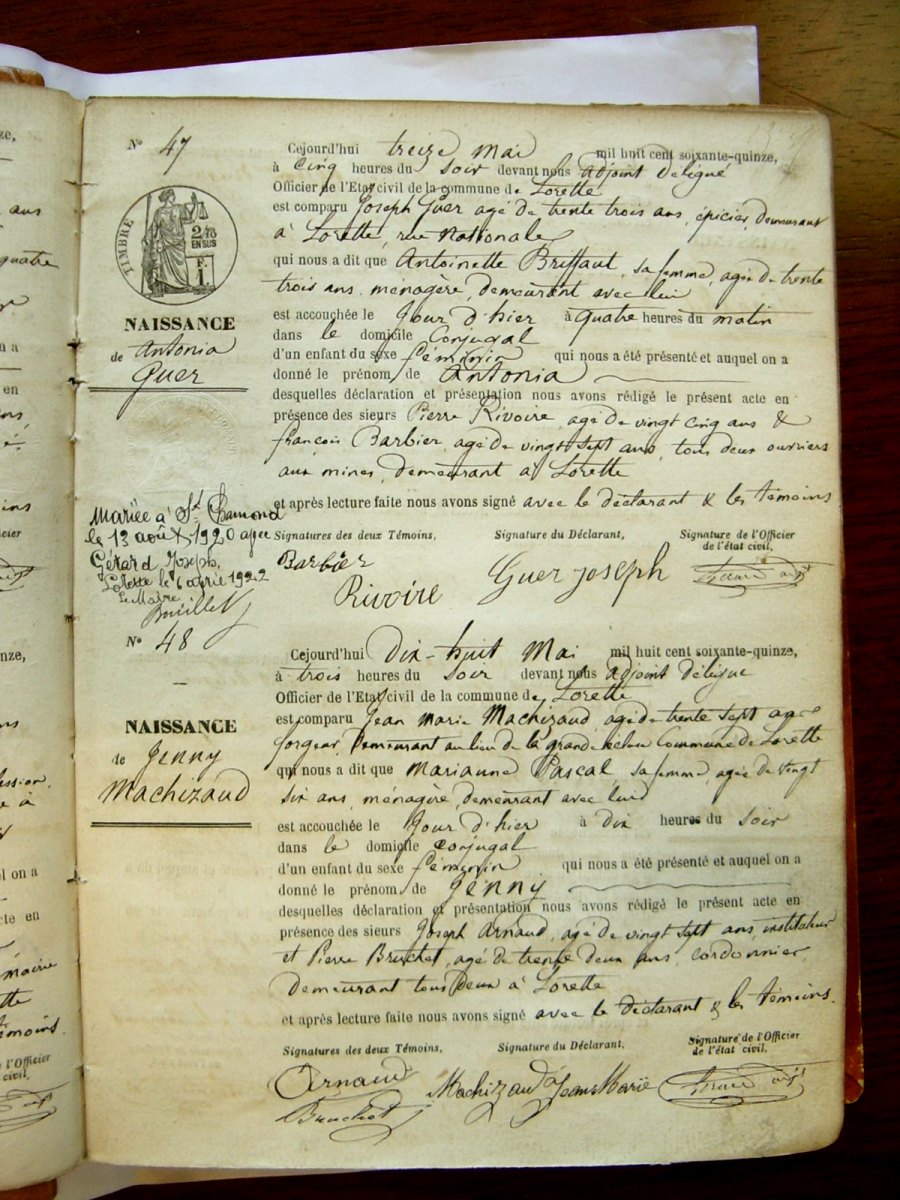 ze,
ans
quatre
n a
en
ins
officier
nze,
ession,
e à
el on a
cte en
mairie
tte
témoins.
l'Officier
civil,
N° 47
TIMBRE
2/10
EN SUS
F.
1
NAISSANCE
de Antonia
Guer
Cejourd'hui treize mai mil huit cent soixante-quinze,
à cinq heures du soir devant nous adjoint délégué
Officier de l'Etat civil de la commune de Lorette
est comparu Joseph Guer agé de trente trois ans, épicier, demeurant
à Lorette, rue Nationale
qui nous a dit que Antoinette Briffaut, sa femme, agée de trente
trois ans, ménagère, demeurant avec lui
est accouchée le Jour d'hier à quatre heures du matin
dans le domicile Conjugal
d'un enfant du sexe féminin qui nous a été présenté et auquel on a
donné le prénom de Antonia
desquelles déclaration et présentation nous avons rédigé le présent acte en
présence des sieurs Pierre Rivoire, agé de vingt cinq ans &
françois Barbier, agé de vingt sept ans, tous deux ouvriers
aux mines, demeurant à Lorette
et après lecture faite nous avons signé avec le déclarant & les témoins
Mariée à St Chamond
le 13 août 1920 avec
Gérard Joseph,
Lorette le 6 avril 1922
Le Maire
Signatures des deux Témoins,
Signature du Déclarant,
Signature de l'Officier
de l'état civil,
Barbier
Rivoire
Guer joseph
N° 48
NAISSANCE
de Jenny
Machizaud
Cejourd'hui Dix-huit Mai mil huit cent soixante-quinze,
à trois heures du Soir devant nous adjoint délégué
Officier de l'Etat civil de la commune de Lorette
est comparu Jean Marie Machizaud, agé de trente sept ans
forgeur, Demeurant au lieu de la grande écluse Commune de Lorette
qui nous a dit que Marianne Pascal, sa femme, agée de vingt
six ans, ménagère, demeurant avec lui
est accouchée le Jour d'hier à dix heures du soir
dans le domicile conjugal
d'un enfant du sexe féminin qui nous a été présenté et auquel on a
donné le prénom de Jenny
desquelles déclaration et présentation nous avons rédigé le présent acte en
présence des sieurs Joseph Arnaud, agé de vingt sept ans, instituteur
et Pierre Bruchet, agé de trente deux ans, cordonnier,
demeurant tous deux à Lorette
et après lecture faite nous avons signé avec le déclarant & les témoins.
Signatures des deux Témoins,
Signature du Déclarant,
Signature de l'Officier
de l'état civil,
Arnaud
Bruchet
Machizaud Jean Marie